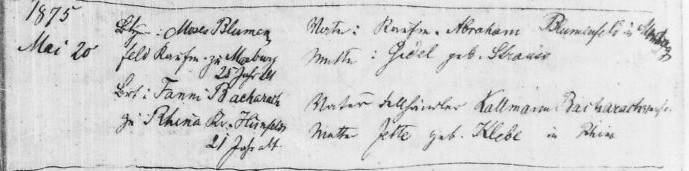 1875
Mai 20
Btgm: Moses Blumen
feld Kaufm. zu Marburg
25 Jahr alt
Brt: Fanni Bacharach
zu Rhina Kr. Hünfeld
21 Jahr alt.
Vater: Kaufm. Abraham Blumenfeld in
Mutter: Gidel geb. Strauss
Vater Kallmann Bacharach
Mutter Jette geb. Klebe in Rhina